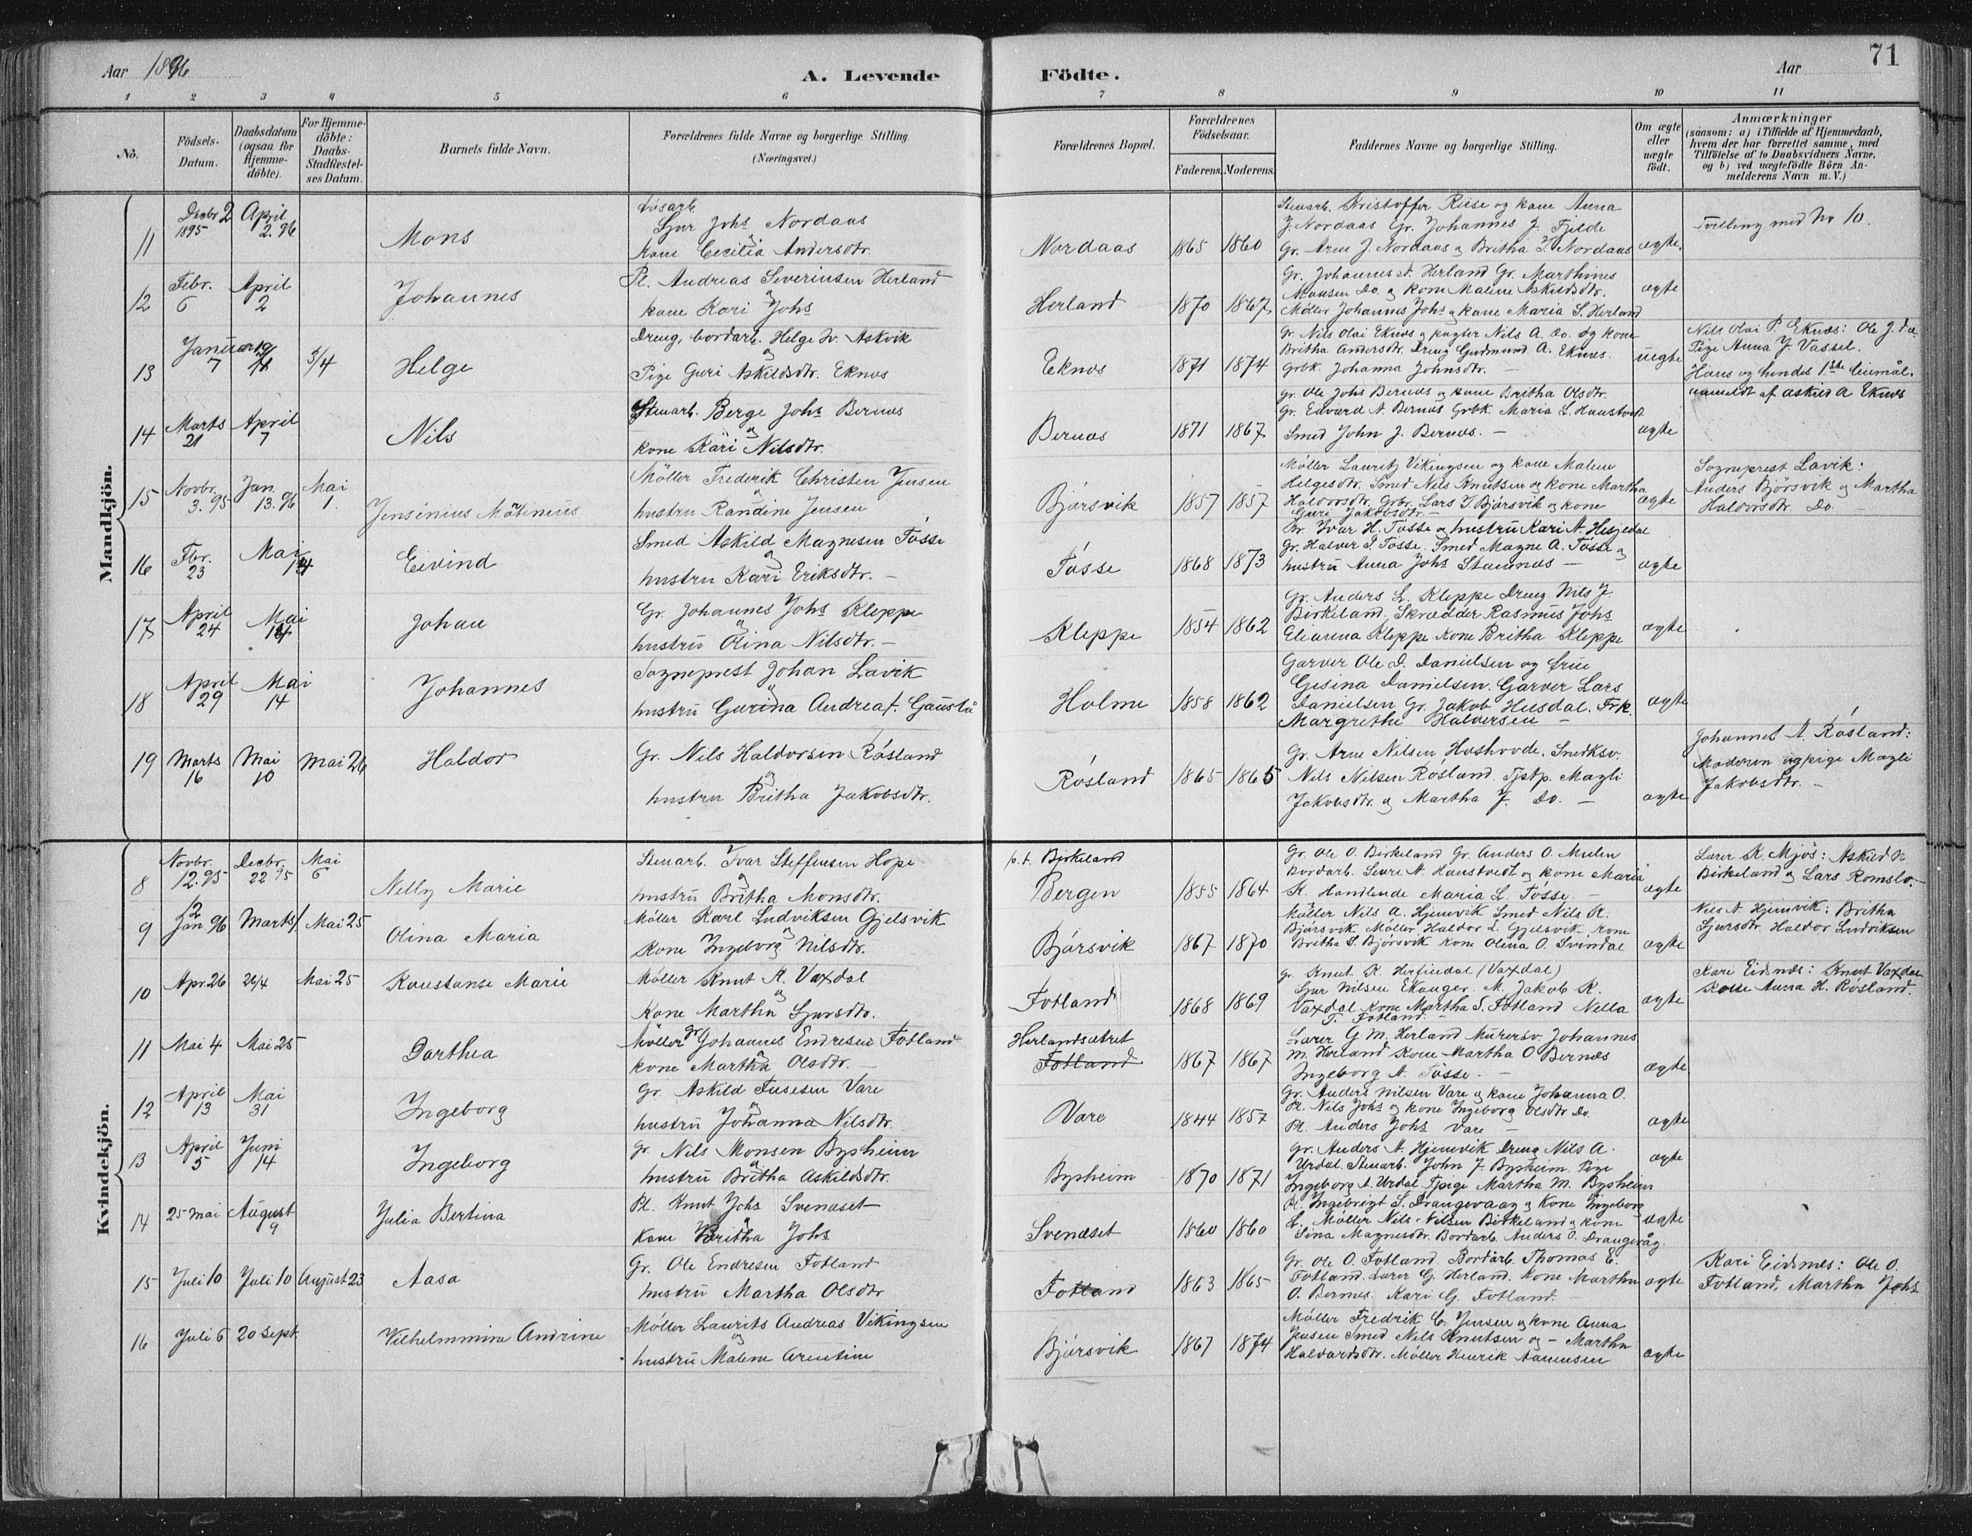 Aar 1896
A. Levende
Födte.
Aar
71
1 2 3 4 5 6 7 8 9 10 11
No.
Födsels-Datum.
Daabsdatum (ogsaa for Hjemme-döbte).
For Hjemme-döbte: Daabs-Stadfæstel-ses Datum.
Barnets fulde Navn.
Forældrenes fulde Navne og borgerlige Stilling (Næringsvei.)
Forældrenes Bopæl.
Forældrenes Födselsaar.
Faderens. Moderens.
Faddernes Navne og borgerlige Stilling.
Om ægte eller uægte födt.
Anmærkninger (saasom: a) i Tilfælde af Hjemmedaab, hvem der har forrettet samme, med Tilföielse af to Daabsvidners Navne, og b) ved uægtefödte Börn An-melderens Navn m. V.)
Mandkjön.
11 Decbr 2 1895 April 2. 96 Mons
Sjur Johs Nordaas
og
kone Cecilia Andersdtr.
Nordaas 1865 1860
Stenarb. Kristoffer Riise og kone Anna
J. Nordaas Gr. Johannes J. Fjelde
Gr. Arne J. Nordaas og Britha J. Nordaas
ægte.
Tvilling med No 10.
12 Febr. 6 April 2 Johannes
Pl. Andreas Severinsen Herland
og
kone Kari Johs
Herland 1870 1867
Gr. Johannes A. Herland Gr. Marthines
Monsen Do. og kone Malene Askildsdtr.
Møller Johannes Johs og kone Maria S. Herland
ægte
13 Januar 7 3/4 Helge
Dreng, bordarb. Helge Askvik
og
Pige Guri Askildsdtr. Eknes
Eknes 1871 1874
Gr. Nils Olai Eknes og Nils A. Do. og kone
Britha Andersdtr. Dreng Gudmund A. Eknes.
Grbk. Johanna Johnsdtr. —
uegte
Nils Olai P. Eknes: Ole J. do
Pige Anna J. Vassel.
Hans og hendes 1ste leiemål.
anmeldt af Askild A Eknes
14 Marts 21 April 7 Nils
Stenarb. Berge Johs Bernes
og
kone Kari Nilsdtr.
Bernes 1871 1867
Gr. Ole Johs Bernes og kone Britha Olsdtr.
Gr. Edvard N. Bernes Grbk. Maria L. Haustvedt
Smed John J. Bernes. —
ægte
15 Novbr. 3. 95 Jan. 13. 96 Mai 1. Jensinius Mötinius
Möller Frederik Christen Jensen
og
hustru Randine Jensen
Bjórsvik 1857 1857
Møller Lauritz Vikingsen og kone Malene
Helgesdtr. Smed Nils Knutsen og kone Martha
Haldorsdtr. Grbr. Lars J. Bjórsvik og kone
Guri Jakobsdtr. —
ægte
Sogneprest Lavik:
Anders Bjørsvik og Martha
Haldorsdtr. Do.
16 Fbr. 23 Mai Eivind
Smed Askild Magnesen Tósse
og
hustru Kari Eriksdtr. —
Tósse 1868 1873
Gr. Ivar H. Tósse og hustru Kari N. Hesjedal
Gr. Halver S. Tósse. Smed Magne A. Tósse og
hustru Anna Johs Stamnes —
ægte
17 April 24 Mai Johan
Gr. Johannes Johs Kleppe
og
hustru Olina Nilsdtr. —
Kleppe 1854 1862
Gr. Anders L. Kleppe Dreng Nils J.
Birkeland. Skrædder Rasmus Johs
Elianna Kleppe Kone Britha Kleppe
ægte
18 April 29 Mai 14 Johannes
Sogneprest Johan Lavik
og
hustru Gurina Andrea f. Gausta
Holme 1858 1862
Garver Ole D. Danielsen og frue
Gesina Danielsen. Garver Lars
Danielsen Gr. Jakob Husdal. Frk.
Margrethe Halversen —
ægte
19 Marts 16 Mai 10 Mai 26 Haldor
Gr. Nils Haldorsen Rósland
og
hustru Britha Jakobsdtr.
Rósland 1865 1865
Gr. Arne Nilsen Hoshovde. Smedksv.
Nils Nilsen Rósland. Tjstp. Magli
Jakobsdtr. og Martha J. Do. —
ægte
Johannes A. Rósland:
Moderen og pige Magli
Jakobsdtr. —
Kvindekjön.
8 Novbr. 12. 95 Decbr. 22 95 Mai 6 Nelly Marie
Stenarb. Ivar Steffensen Hope
og
hustru Britha Monsdtr.
p.t. Birkeland
Bergen 1855 1864
Gr. Ole O. Birkeland Gr. Anders O. Mulen
Bordarb. Sevre N. Haustvedt og kone Maria
K. Handlende Maria L. Tósse —
ægte
Lærer K. Mjös: Askild N
Birkeland og Lars Romslo. —
9 Jan 96 Marts 1 Mai 25 Olina Maria
Møller Karl Ludviksen Gjelsvik
og
Kone Ingeborg Nilsdtr.
Bjórsvik 1867 1870
Møller Nils A. Hjemvik Smed Nils K.
Bjórsvik Møller Haldor L. Gjelsvik kone
Britha S. Bjórsvik kone Olina O. Svindal
ægte
Nils A. Hjemvik: Britha
Sjursdtr. Haldor Ludviksen
10 Apr. 26 26/4 Mai 25 Konstanse Marie
Møller Knut K. Vaxdal
og
Kone Martha Sjursdtr.
Fotland 1868 1869
Gr. Knut K. Herfindal (Vaxdal)
Sjur Nilsen Ekanger. M. Jakob K.
Vaxdal Kone Martha S. Fotland Nella
T. Fotland. —
ægte
Kari Eidsnes: Knut Vaxdal
Kone Anna H. Røsland.
11 Mai 4 Mai 25 Dorthea
Möller Gr Johannes Endresen Fotland
og
kone Martha Olsdtr. —
Herlandsætret
Fotland 1867 1867
Lærer G M. Herland Murersv. Johannes
M. Herland Kone Martha O Bernes
Ingeborg A. Tösse. —
ægte
12 April 13 Mai 31 Ingeborg
Gr. Askild Vare
og
hustru Johanna Nilsdtr.
Vare 1844 1857
Gr. Anders Nilsen Vare og kone Johanna O.
Pl. Nils Johs og kone Ingeborg Olsdtr Do.
Pl. Anders Johs Vare —
ægte
13 April 5 Juni 14 Ingeborg
Gr. Nils Monsen Bysheim
og
hustru Britha Askildsdtr.
Bysheim 1870 1871
Gr. Anders N. Hjemvik Dreng Nils A.
Urdal. Stenarb. John J. Bysheim. Pige
Ingeborg A. Urdal Tjpige Martha M. Bysheim
ægte
14 25 Mai August 9 Julia Bertina
Pl. Knut Johs Svenæset
og
Kone Britha Johs
Svenæset 1860 1860
Pl. Ingebrigt S. Drangevaag og Kone Ingeborg
L. Møller Nils Nilsen Birkeland og kone
Sina Magnesdtr. Bordarb. Anders O. Drangevåg.
ægte
15 Juli 10 Juli 10 August 23 Aasa
Gr. Ole Endresen Fotland
hustru Martha Olsdtr
Fotland 1863 1865
Gr. Ole O. Fotland Bordarb. Thomas E.
Fotland. Lærer G. Herland. Kone Martha
O. Bernes. Kari G. Fotland —
ægte
Kari Eidsnes: Ole O.
Fotland, Martha Johs
16 Juli 6 20 Sept. Vilhelmmina Andrine
Møller Laurits Andreas Vikingsen
og
hustru Malene Arentine
Bjórsvik 1867 1874
Møller Fredrik C. Jensen og kone Anna
Jensen Smed Nils Knutsen og — Martha
Halvardsdtr. Møller Henrik Aanensen
ægte